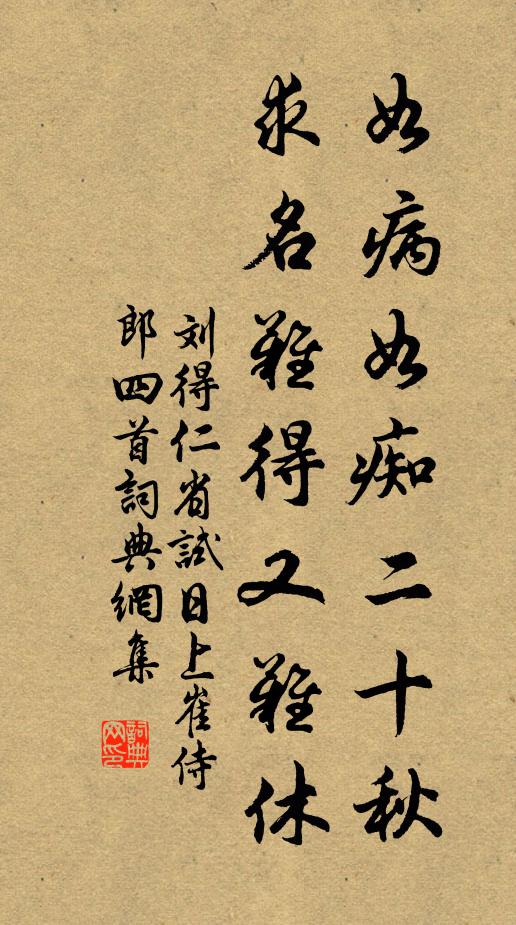 如病如痴二十秋
求名難得又難休
刘得仁省試日上崔侍
郎四首詞典網集
詞典
网印